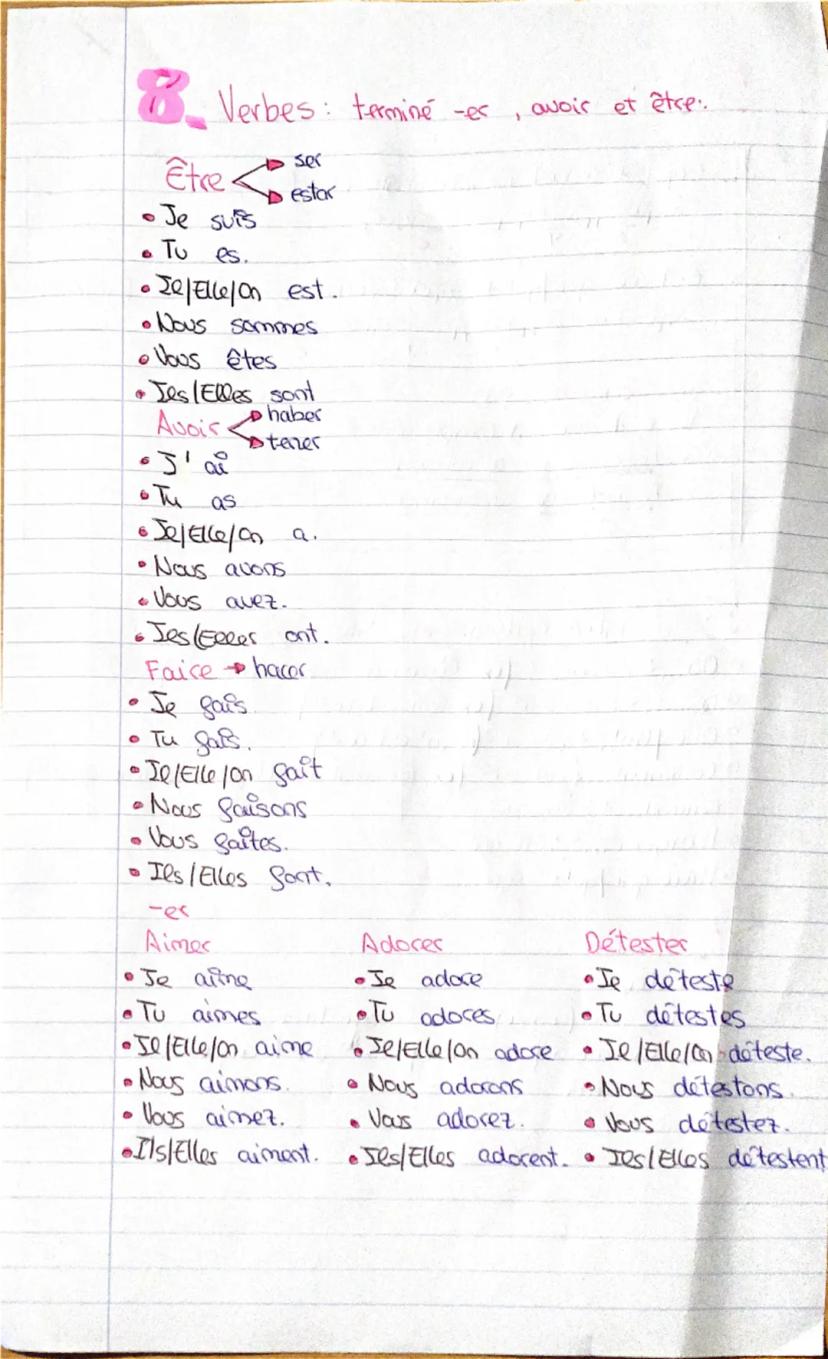 8. Verbes: terminé -er, avoir et être.
Être → ser
→ estar
• Je suis
• Tu es.
• Il/Elle/On est.
• Nous sommes
• Vous êtes
• Ils/Elles sont
Avoir → haber
→ tener
• J'ai
• Tu as
• Il/Elle/On a.
• Nous avons
• Vous avez.
• Ils/Elles ont.
Faire → hacer
• Je fais
• Tu fais.
• Il/Elle/on fait
• Nous faisons
• Vous faites.
• Ils/Elles font.
-er
Aimer Adorer Détester
• Je aime • Je adore • Je déteste
• Tu aimes • Tu adores • Tu détestes
• Il/Elle/on aime • Il/Elle/On adore • Il/Elle/On déteste.
• Nous aimons. • Nous adorons • Nous détestons.
• Vous aimez. • Vous adorez. • Vous détestez.
• Ils/Elles aiment. • Ils/Elles adorent. • Ils/Elles détestent